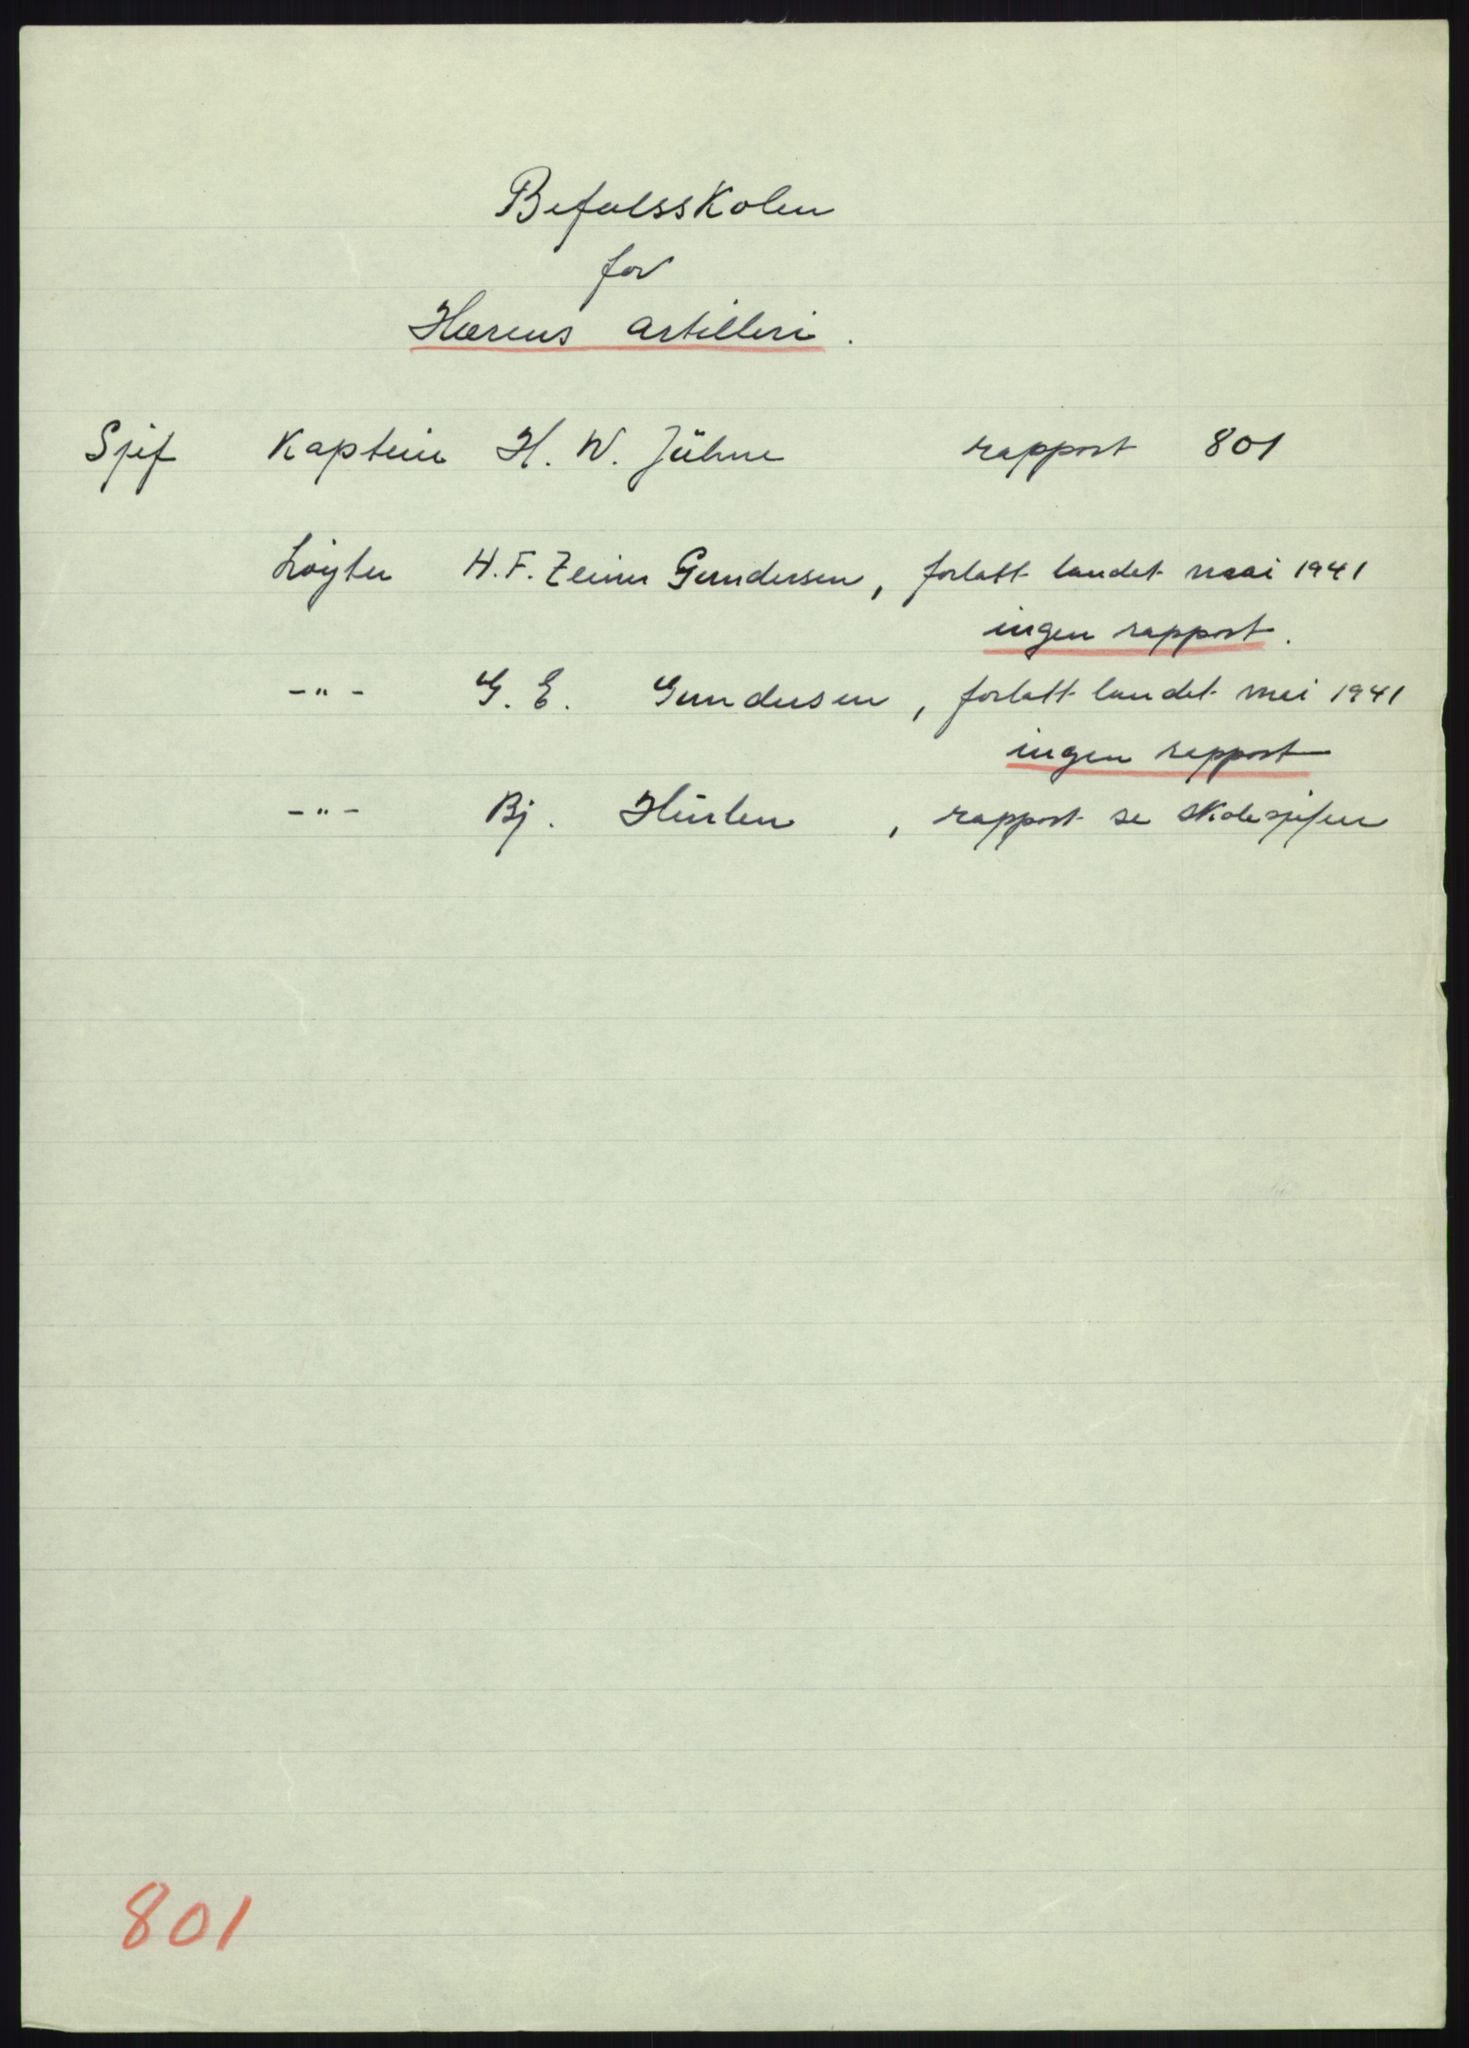 Befalsskolen
for
Hærens artilleri.
Sjef Kaptein H. W. Jühne rapport 801
Løytn H.F. Zeiner Gundersen, forlatt landet mai 1941
ingen rapport.
-"- G. E. Gundersen, forlatt landet mai 1941
ingen rapport
-"- Bj. , rapport se skolesjefen
801